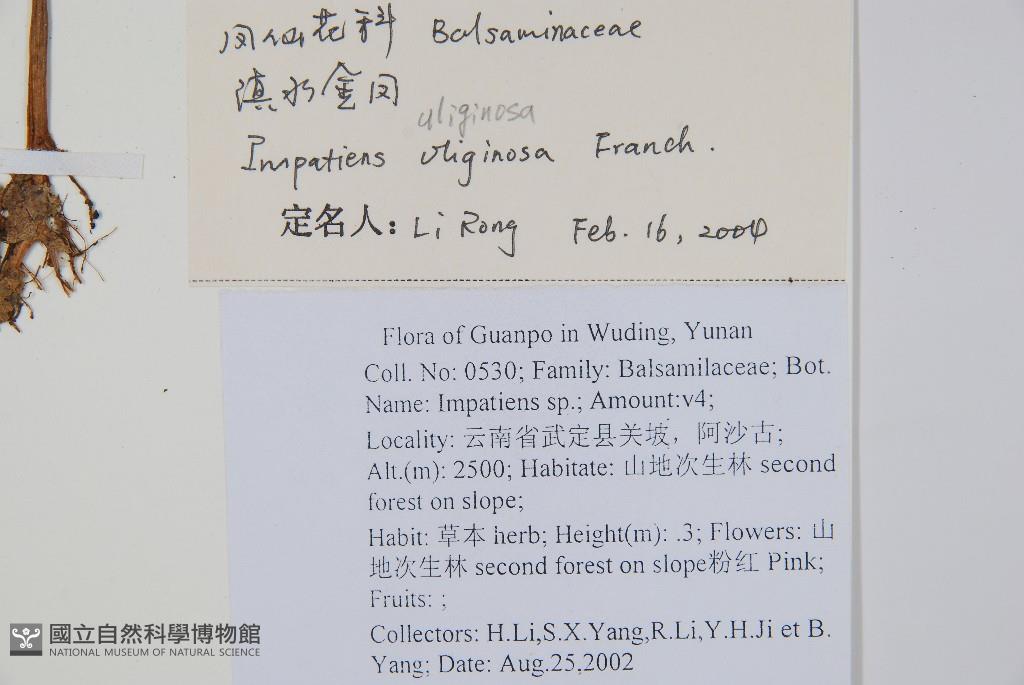 凤仙花科 Balsaminaceae
滇水金凤
uliginosa
Impatiens uliginosa Franch.
定名人: Li Rong Feb. 16, 2004
Flora of Guanpo in Wuding, Yunan
Coll. No: 0530; Family: Balsamilaceae; Bot.
Name: Impatiens sp.; Amount:v4;
Locality: 云南省武定县关坡，阿沙古;
Alt.(m): 2500; Habitate: 山地次生林 second
forest on slope;
Habit: 草本 herb; Height(m): .3; Flowers: 山
地次生林 second forest on slope粉红 Pink;
Fruits: ;
Collectors: H.Li,S.X.Yang,R.Li,Y.H.Ji et B.
Yang; Date: Aug.25,2002
國立自然科學博物館
NATIONAL MUSEUM OF NATURAL SCIENCE